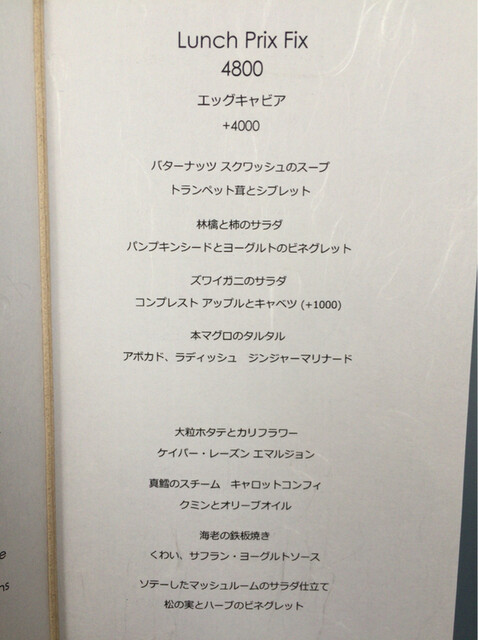 Lunch Prix Fix
4800
エッグキャビア
+4000
バターナッツ スクワッシュのスープ
トランペット茸とシブレット
林檎と柿のサラダ
パンプキンシードとヨーグルトのビネグレット
ズワイガニのサラダ
コンプレスト アップルとキャベツ (+1000)
本マグロのタルタル
アボカド、ラディッシュ　ジンジャーマリナード
大粒ホタテとカリフラワー
ケイパー・レーズン エマルジョン
真鱈のスチーム　キャロットコンフィ
クミンとオリーブオイル
海老の鉄板焼き
くわい、サフラン・ヨーグルトソース
ソテーしたマッシュルームのサラダ仕立て
松の実とハーブのビネグレット